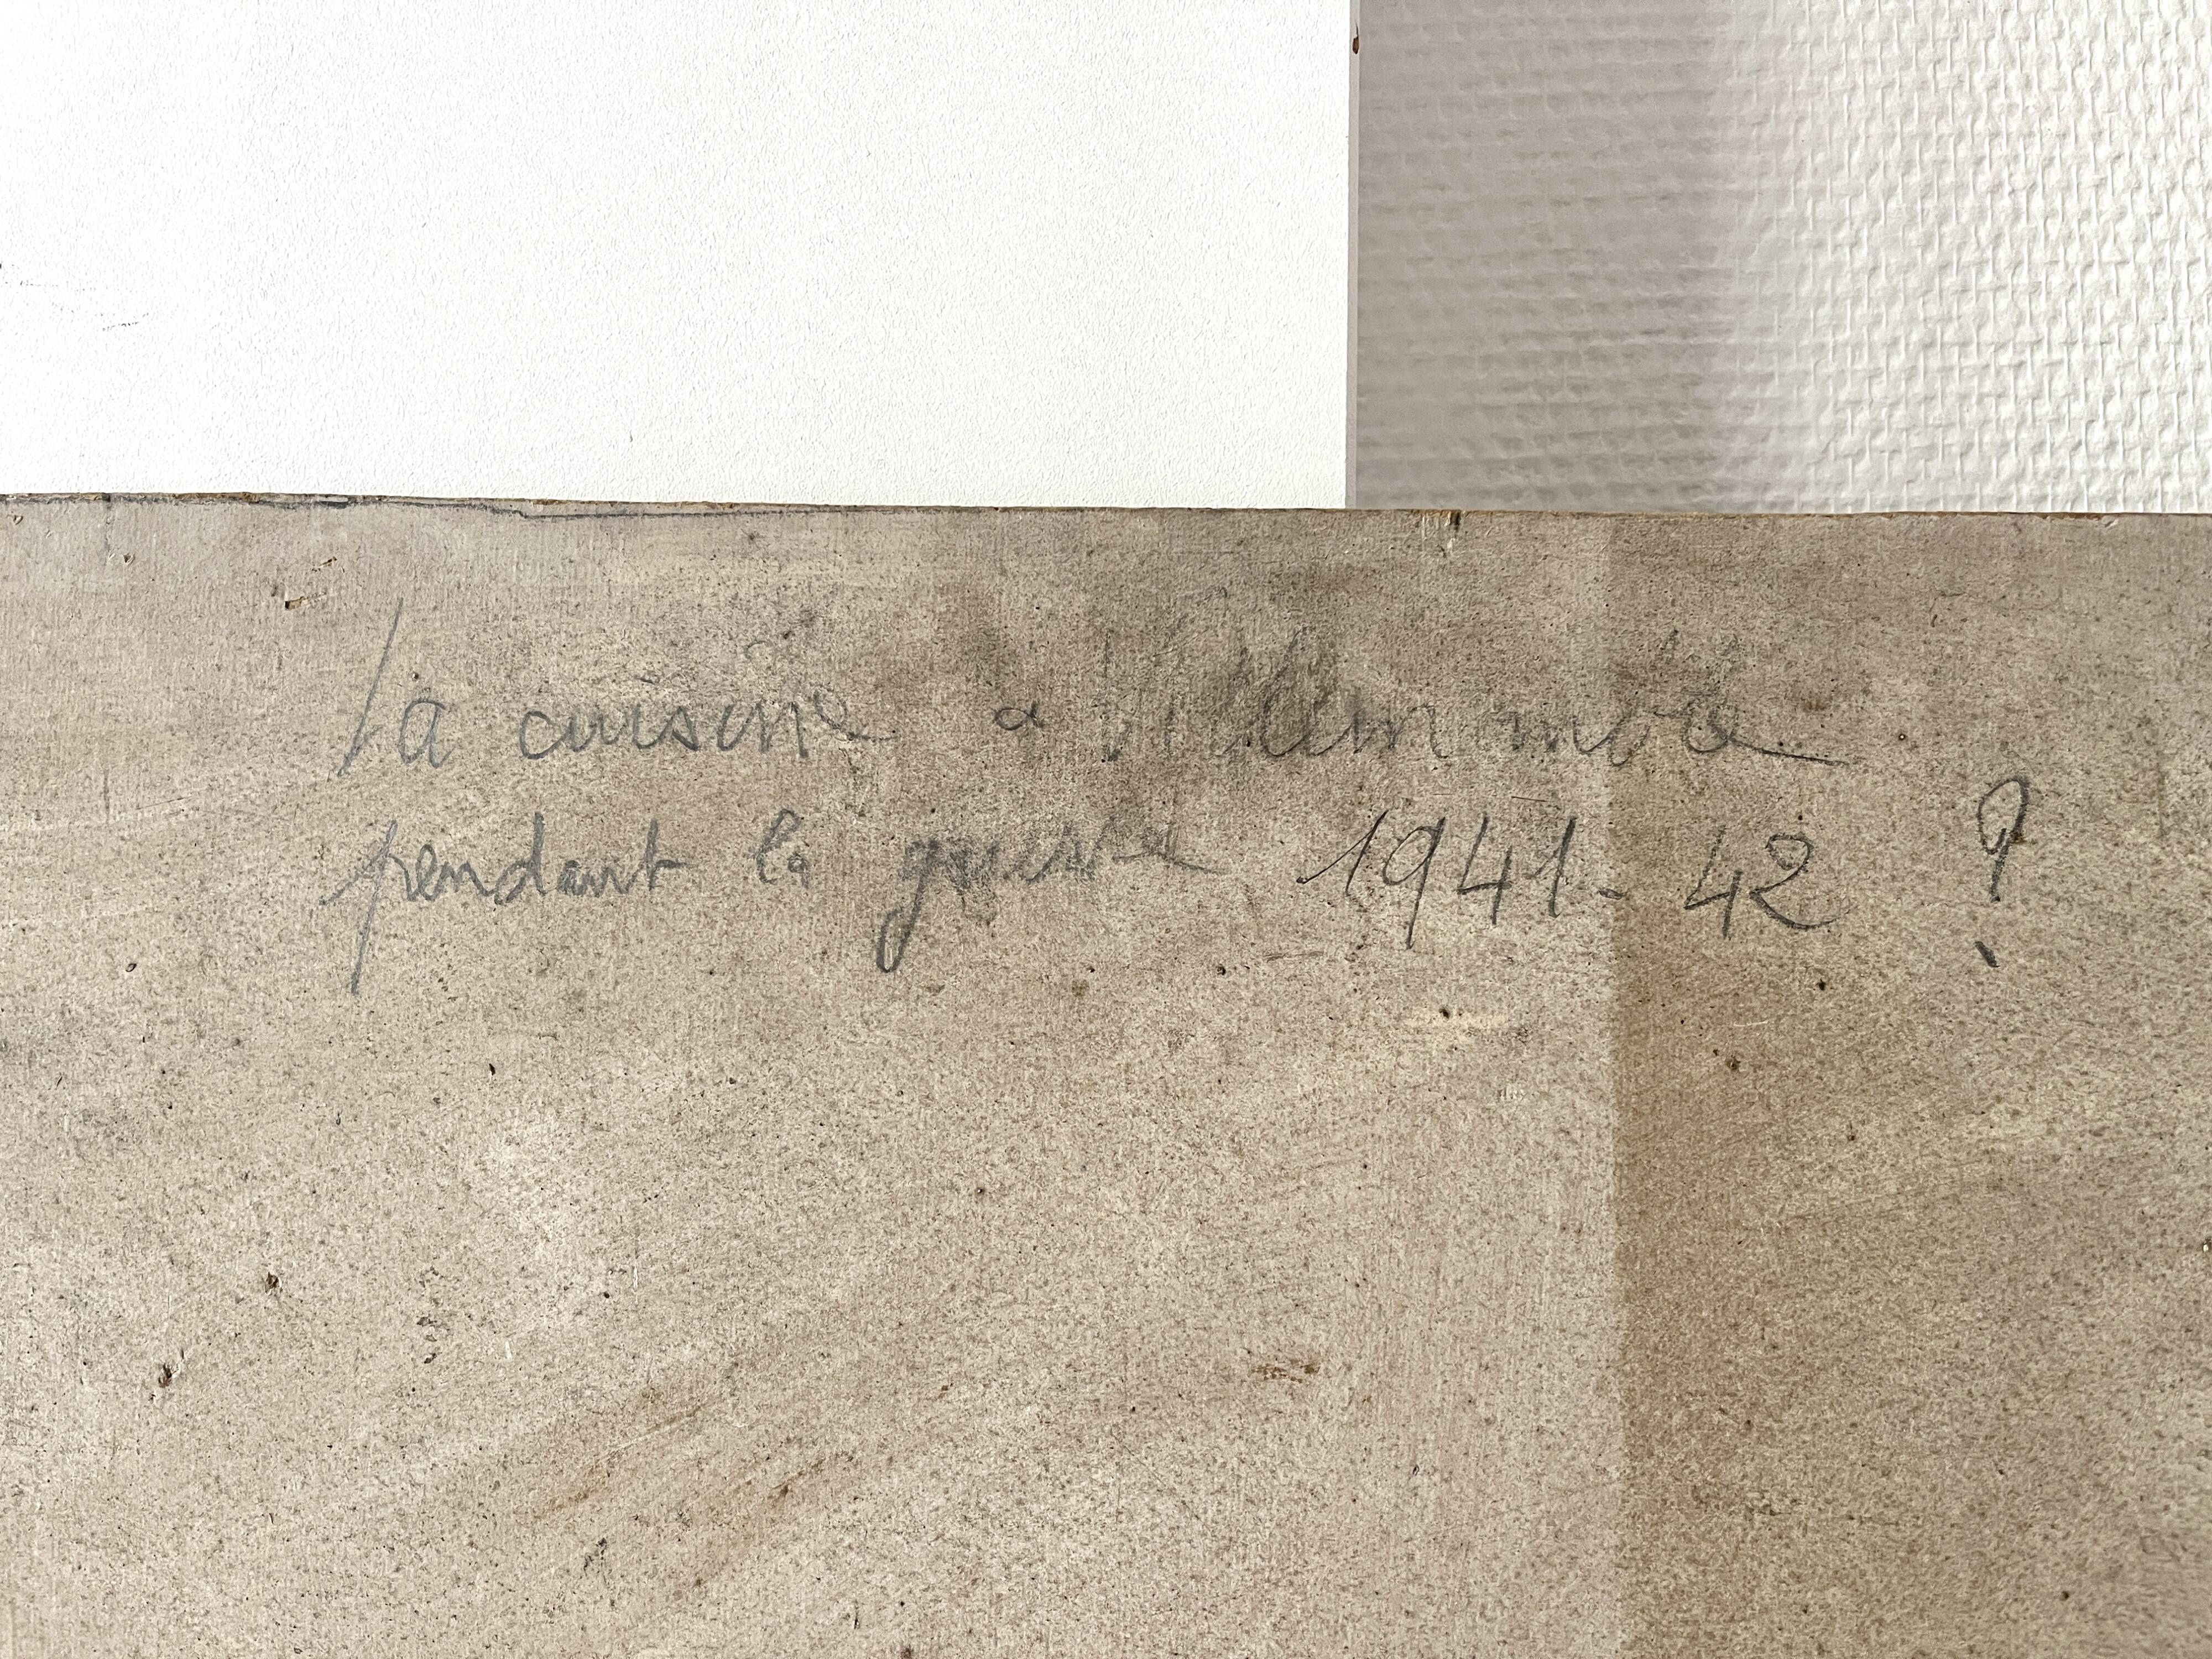 La cuisine a
pendant la guerre 1941-42 ?